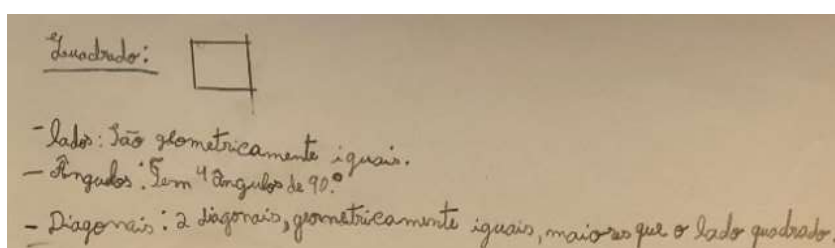 Quadrado:
- lados: São geometricamente iguais.
- Ângulos: Tem 4 ângulos de 90.º
- Diagonais: 2 diagonais, geometricamente iguais, maiores que o lado quadrado.